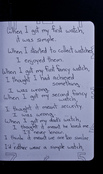 When I got my first watch,
it was simple.
When I started to collect watches
I enjoyed them.
When I got my first fancy watch,
I thought I had achieved
something.
I was wrong.
When I got my second fancy
watch,
I thought it meant
I was wrong.
When I got my watch,
I thought it meant to
I'd never know
I think it meant
I'd rather wear a simple watch.